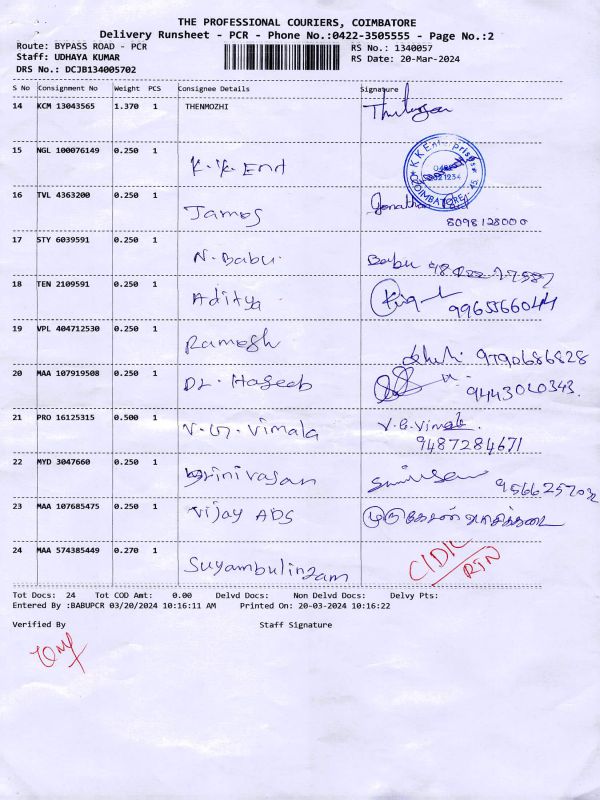 THE PROFESSIONAL COURIERS, COIMBATORE
Delivery Runsheet - PCR - Phone No.:0422-3505555 - Page No.:2
Route: BYPASS ROAD - PCR RS No.: 1340057
Staff: UDHAYA KUMAR RS Date: 20-Mar-2024
DRS No.: DCJB134005702
S No Consignment No Weight PCS Consignee Details Signature
14 KCM 13043565 1.370 1 THENMOZHI
15 NGL 100076149 0.250 1 K.K. Ent
K.K Enterprises
COIMBATORE - 45
16 TVL 4363200 0.250 1 James Jonathan
8098128000
17 STY 6039591 0.250 1 N. Babu Babu
18 TEN 2109591 0.250 1 Aditya 9965566044
19 VPL 404712530 0.250 1 Ramesh 9790686828
20 MAA 107919508 0.250 1 DL. Haseeb 9443060343.
21 PRO 16125315 0.500 1 V.G. Vimala V.G. Vimala
9487284671
22 MYD 3047660 0.250 1 Srinivasan
23 MAA 107685475 0.250 1 Vijay ADS
24 MAA 574385449 0.270 1 Suyambulingam
RTN
Tot Docs: 24 Tot COD Amt: 0.00 Delvd Docs: Non Delvd Docs: Delvy Pts:
Entered By :BABUPCR 03/20/2024 10:16:11 AM Printed On: 20-03-2024 10:16:22
Verified By Staff Signature